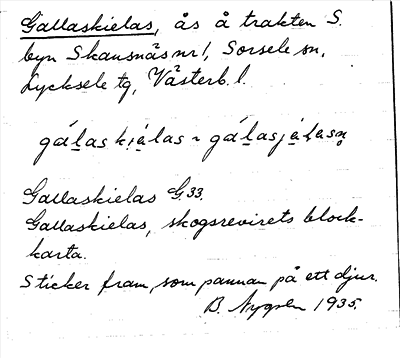 Gallaskielas, ås å trakten S.
byn Skansnäs nr 1, Sorsele sn,
Lycksele tg, Västerb. l.
gálas kjélas ~ gálasjélasn
Gallaskielas G.33.
Gallaskielas, skogsrevirets block-
karta.
Sticker fram, som pannan på ett djur.
B. Nygren 1935.